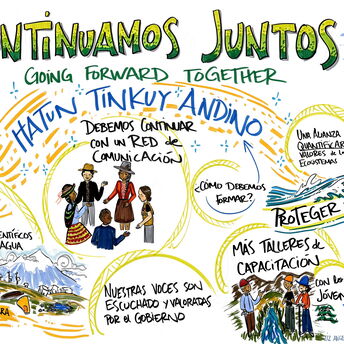 NTINUAMOS JUNTOS
GOING FORWARD TOGETHER
HATUN TINKUY ANDINO
DEBEMOS CONTINUAR
CON UN RED de
COMUNICACIÓN
¿CÓMO DEBEMOS
FORMAR?
UNA ALIANZA
QUANTIFICAR
VALORES de
ECOSISTEMAS
PROTEGER
MÁS TALLERES de
CAPACITACIÓN
CON LOS
JÓVEN
NUESTRAS VOCES SON
ESCUCHADO y VALORADAS
POR EL GOBIERNO
ENTÍFICOS
AGUA